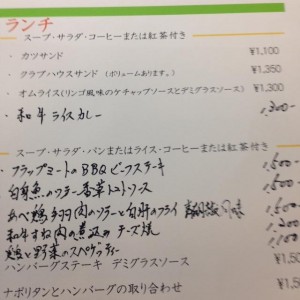 ランチ
スープ・サラダ・コーヒーまたは紅茶付き
・ カツサンド ¥1,100
・ クラブハウスサンド (ボリュームあります。) ¥1,350
・ オムライス(リンゴ風味のケチャップソースとデミグラスソース) ¥1,300
・ 和牛ライスカレー 1,300-
スープ・サラダ・パンまたはライス・コーヒーまたは紅茶付き
・ フラップミートのBBQビーフステーキ 1,600-
白身魚のソテー香草トマトソース
あべ鶏 肉のソテーと白肝のフライ 風味
和牛すね肉の煮込み チーズ焼
鶏と野菜のスペゲッティー
ハンバーグステーキ デミグラスソース
ナポリタンとハンバーグの取り合わせ